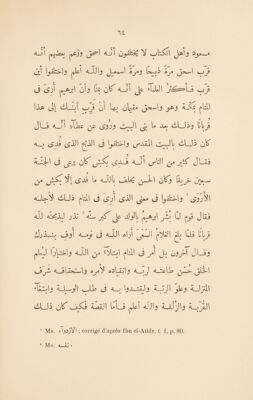 ٦٤
مسعود وأهل الكتاب لا يختلفون أنّه اسحق وزعم بعضهم أنّه
قرّب اسحق مرّة ذبيحًا ومرّة اسمعيل والله أعلم واختلفوا أين
قرّب فأكثر العلماء على أنّه كان بمنًا وأنّ ابرهيم أُرى فى
المنام بمكّة وهو واسحق مقيمان بها أنْ قرّبِ ابنك إلى هذا
قربانًا وذلك بعد ما بنى البيت ورُوى عن عطاء أنّه قال
كان ذلك بالبيت المقدس واختلفوا فى الذبح الذى فُدى به
فقال كثير من الناس أنّه فُدى بكبش كان يرعى فى الجنّة
سبعين خريفًا وكان الحسن يحلف بالله ما فُدى إلّا بكبش من
الأَرْوَى¹ واختلفوا فى معنى الذى أُرى فى المنام ذلك لأجله
فقال قوم لمّا بُشّر ابرهيم بالولد على كبر سنّه² نذر ليذبحنّه لله
قربانًا فلمّا بلغ الغلامُ السَّعْىَ أُراه الله فى نومه أوفِ بنذرك
وقال آخرون بل أُمر فى المنام ابتلآءً من الله واختبارًا ليُعلم
الخلق حُسْن طاعته لربّه وانقياده لأمره واستحقاقه شرف
المنزلة وعلوّ الرتبة وليقتدوا به فى طلب الوسيلة وابتغآء
القُربة والزُلْفة والله أعلم فأمّا القصّة فكيف كان ذلك
¹ Ms. الاردوآء ; corrigé d'après Ibn el-Athîr, t. I, p. 80.
² Ms. نفسه.